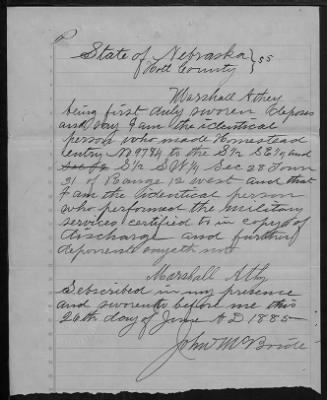 State of Nebraska } ss
Holt County
Marshall Athey
being first duly sworn deposes
and say I am the identical
person who made Homestead
Entry No 9784 to the S½ SE¼ and
S½ SW¼ Sec 28 Town
31 of Range 12 West and that
I am the identical person
who performed the military
services certified to in copy of
discharge and further
deponent sayeth not
Marshall Athy
Subscribed in my presence
and sworn to before me this
26th day of June AD 1885
John McBride